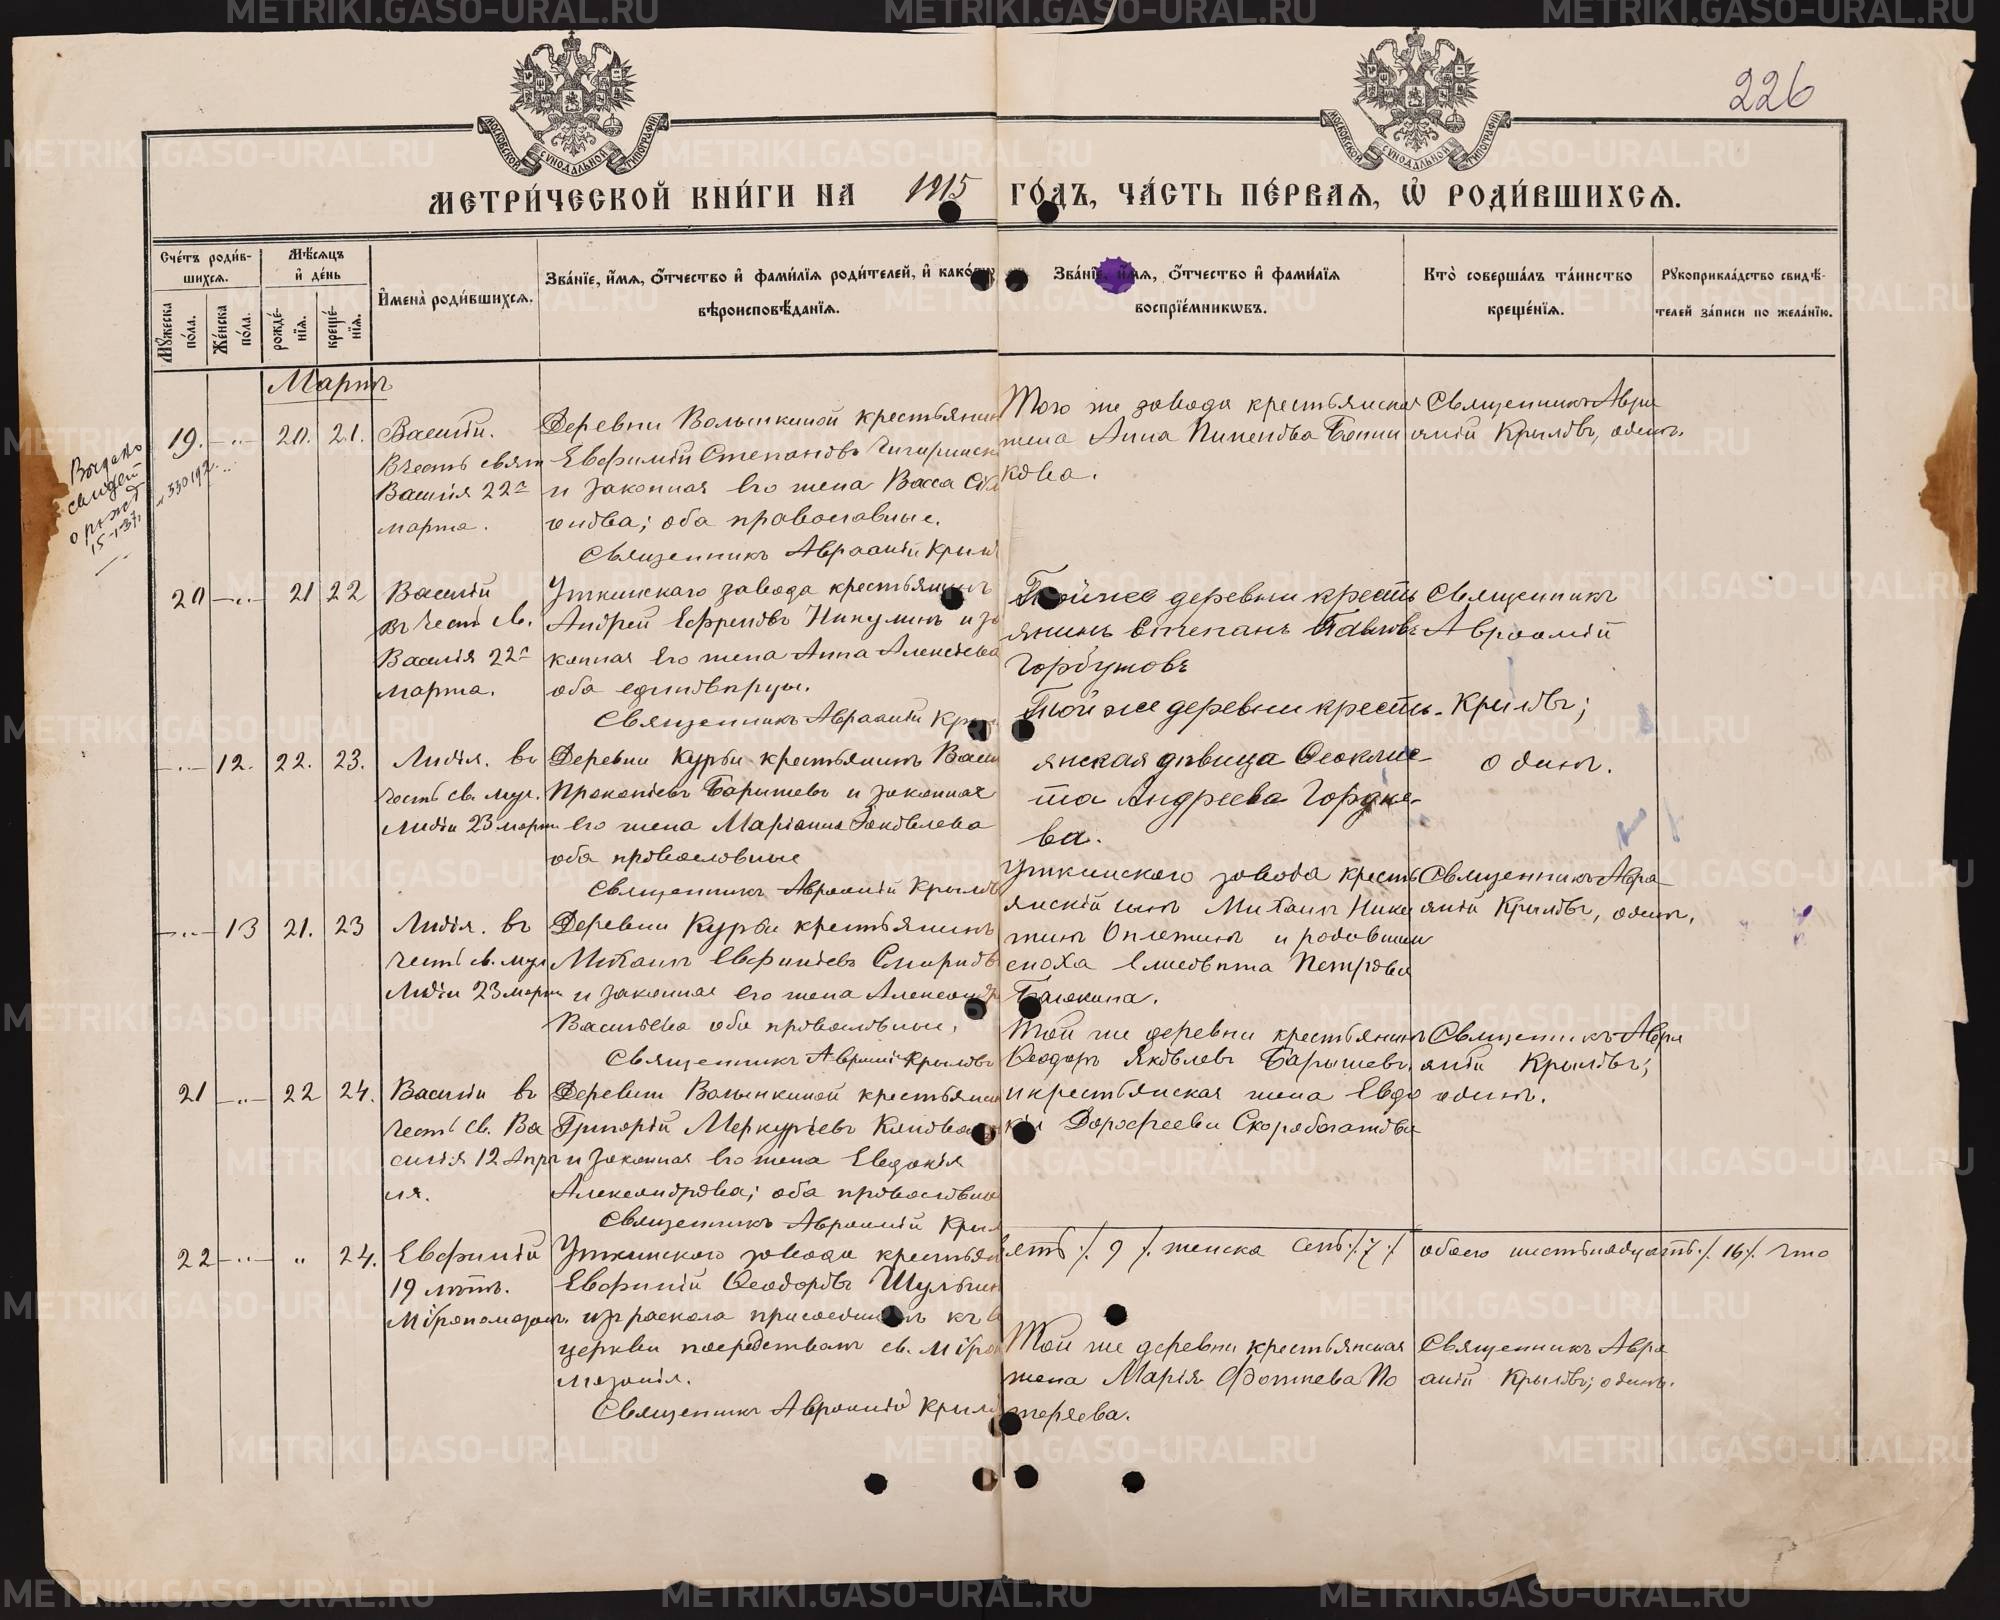 226
МЕТРИ́ЧЕСКОЙ КНИ́ГИ НА 1915 ГО́ДЪ, ЧА́СТЬ ПЕ́РВАѦ, Ѽ РОДИ́ВШИХСѦ.
Сче́тъ роди́вшихсѧ.
Мꙋ́жеска по́ла.
Же́нска по́ла.
Мѣ́сѧцъ и҆ де́нь
рожде́нїѧ.
креще́нїѧ.
И҆мена̀ роди́вшихсѧ.
Зва́нїе, и҆́мѧ, ѻ҆́тчество и҆ фами́лїѧ роди́телей, и҆ како́
вѣроисповѣ́данїѧ.
Зва́нїе, и҆́мѧ, ѻ҆́тчество и҆ фами́лїѧ
воспрїе́мникѡвъ.
Кто̀ соверша́лъ та́инство
креще́нїѧ.
Рꙋкоприкла́дство свидѣ́-
телей за́писи по жела́нїю.
Мартъ
19. 20. 21. Василій.
Въ честь свят
Василія 22го
марта.
Деревни Волынкиной крестьянин
Евфимій Степановъ
и законная его жена Васса
оба православные.
Священникъ Авраамій Крыл
Того же завода крестьянская
жена Анна Пименова
кова.
Священникъ Авра
амій Крыловъ, одинъ.
20 21 22 Василій
въ честь св.
Василія 22го
марта.
Уткинскаго завода крестьянинъ
Андрей Ефремовъ Никулинъ и за
конная его жена Анна Алексеева
оба единоверцы.
Священникъ Авраамій Кры
Той же деревни кресть
янинъ Степанъ Павловъ
Горбуновъ
Той же деревни кресть-
янская девица Феоклис-
та Андреева Гордее-
ва.
Священникъ
Авраамій
Крыловъ;
одинъ.
12. 22. 23. Лидія. въ
честь св. муч.
Лидіи 23 марта
Деревни Курьи крестьянинъ Васи
Прокопіевъ Барышевъ и законная
его жена Маріанна Яковлева
оба православные
Священникъ Авраамій Крыловъ
Уткинскаго завода кресть
янскій сынъ Михаилъ Ники
тинъ Оплетинъ и
Елисавета Петрова
Священникъ Авра
амій Крыловъ, одинъ.
13 21. 23 Лидія. въ
честь св. муч
Лидіи 23 марта
Деревни Курьи крестьянинъ
Михаилъ Евфиміевъ Спиридов
и законная его жена Александр
Васильева оба православные.
Священникъ Авраамій Крыловъ
Той же деревни крестьянинъ
Феодоръ Яковлевъ Барышевъ
и крестьянская жена Евдо
кія Дорофеева Скоробогатова
Священникъ Авра
амій Крыловъ;
одинъ.
21 22 24. Василій въ
честь св. Ва
силія 12 Апре
ля.
Деревни Волынкиной крестьянин
Григорій Меркурьевъ Конова
и законная его жена Евдокія
Александрова; оба православные
Священникъ Авраамій Крыл
Той же деревни крестьянская
жена Марія Фотиева По
теряева.
Священникъ Авра
амій Крыловъ; одинъ.
22 24. Евфимій
19 летъ.
Мѵропомазан.
Уткинскаго завода крестьян
Евфимій Феодоровъ Шульгин
изъ раскола присоединенъ къ
церкви посредствомъ св. Мѵро
мазанія.
Священникъ Авраамій Крыло
ять /. 9 /. женска семь /. 7 /. обаго шестьнадцать /. 16 /. что